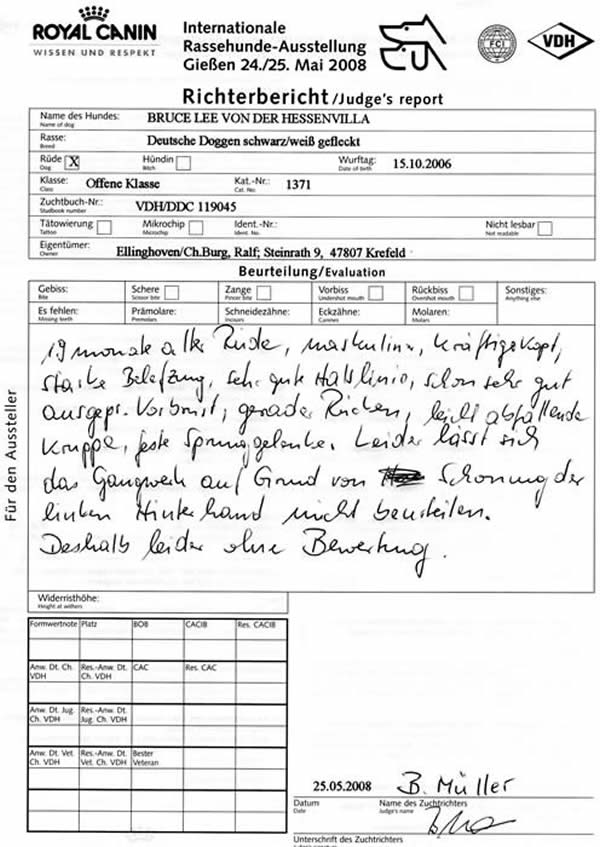 ROYAL CANIN
WISSEN UND RESPEKT
Internationale
Rassehunde-Ausstellung
Gießen 24./25. Mai 2008
FCI
VDH
Richterbericht/Judge's report
Name des Hundes: BRUCE LEE VON DER HESSENVILLA
Name of dog
Rasse: Deutsche Doggen schwarz/weiß gefleckt
Breed
Rüde X Hündin Wurftag: 15.10.2006
Dog Bitch Date of birth
Klasse: Offene Klasse Kat.-Nr.: 1371
Class Cat. No.
Zuchtbuch-Nr.: VDH/DDC 119045
Studbook number
Tätowierung Mikrochip Ident.-Nr.: Nicht lesbar
Tattoo Microchip Ident. No. Not readable
Eigentümer: Ellinghoven/Ch.Burg, Ralf; Steinrath 9, 47807 Krefeld
Owner
Beurteilung/Evaluation
Gebiss: Schere Zange Vorbiss Rückbiss Sonstiges:
Bite Scissor bite Pincer bite Undershot mouth Overshot mouth Anything else
Es fehlen: Prämolare: Schneidezähne: Eckzähne: Molaren:
Missing teeth Premolars Incisors Canines Molars
19 monate alter Rüde, maskulin, kräftiger Kopf,
starke Belefzung, sehr gute Halslinie, schon sehr gut
ausgepr. Vorbrust, gerader Rücken, leicht abfallende
Kruppe, feste Sprunggelenke. Leider lässt sich
das Gangwerk auf Grund von Schonung der
linken Hinterhand nicht beurteilen.
Deshalb leider ohne Bewertung.
Für den Aussteller
Widerristhöhe:
Height at withers
Formwertnote Platz BOB CACIB Res. CACIB
Anw. Dt. Ch. Res.-Anw. Dt. CAC Res. CAC
VDH Ch. VDH
Anw. Dt. Jug. Res.-Anw. Dt.
Ch. VDH Jug. Ch. VDH
Anw. Dt. Vet. Res.-Anw. Dt. Bester
Ch. VDH Vet. Ch. VDH Veteran
25.05.2008 B. Müller
Datum Name des Zuchtrichters
Date Judge's name
Unterschrift des Zuchtrichters
Judge's signature